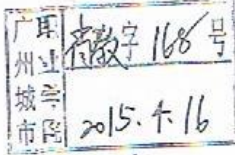 广州城市职业学院
教字 168 号
2015.4.16